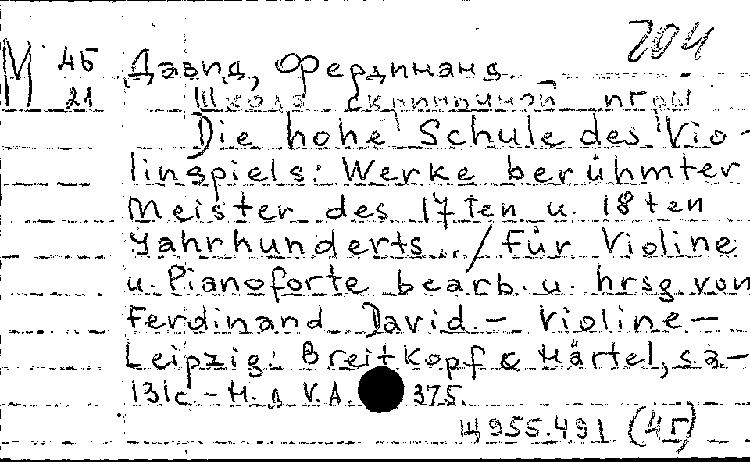 204
М 45 Давид, Фердинанд
21 Школа скрипичной игры
Die hohe Schule des Vio-
linspiels: Werke berühmter
Meister des 17ten u. 18ten
Jahrhunderts.. / Für Violine
u. Pianoforte bearb. u. hrsg. von
Ferdinand David - Violine -
Leipzig: Breitkopf & Härtel, s.a-
131c - Н. д. V.A. 375.
Щ955.491 (4Г)